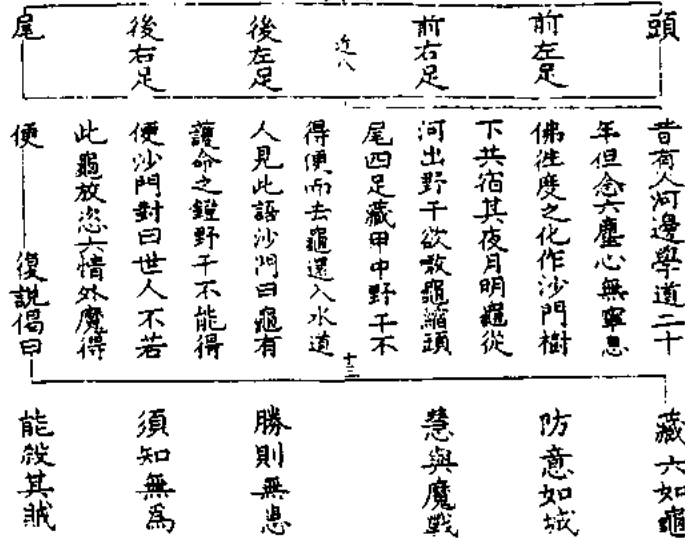 頭
前左足
前右足
近八
後左足
後右足
尾
昔有人河邊學道二十
年但念六塵心無寧息
佛往度之化作沙門樹
下共宿其夜月明龜從
河出野干欲敢龜縮頭
尾四足藏甲中野干不
得便而去龜還入水道
人見此語沙門曰龜有
護命之鎧野干不能得
便沙門對曰世人不若
此龜放恣六情外魔得
便
復說偈曰
十三
藏六如龜
防意如城
慧與魔戰
勝則無患
須知無為
能殺其賊